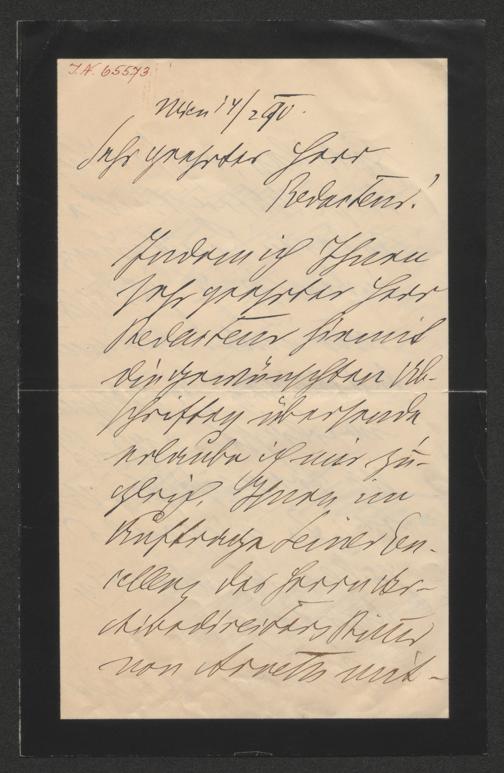 I.N. 65573
Wien 14/2 90.
Sehr geehrter Herr
Redacteur!
Indem ich Ihnen
sehr geehrter Herr
Redacteur hiemit
die gewünschten Ab-
schriften übersende
erlaube ich mir zu-
gleich, Ihnen im
Auftrage Seiner Ex-
cellenz des Herrn Ar-
chivsdirectors Ritter
von Arneth mit-